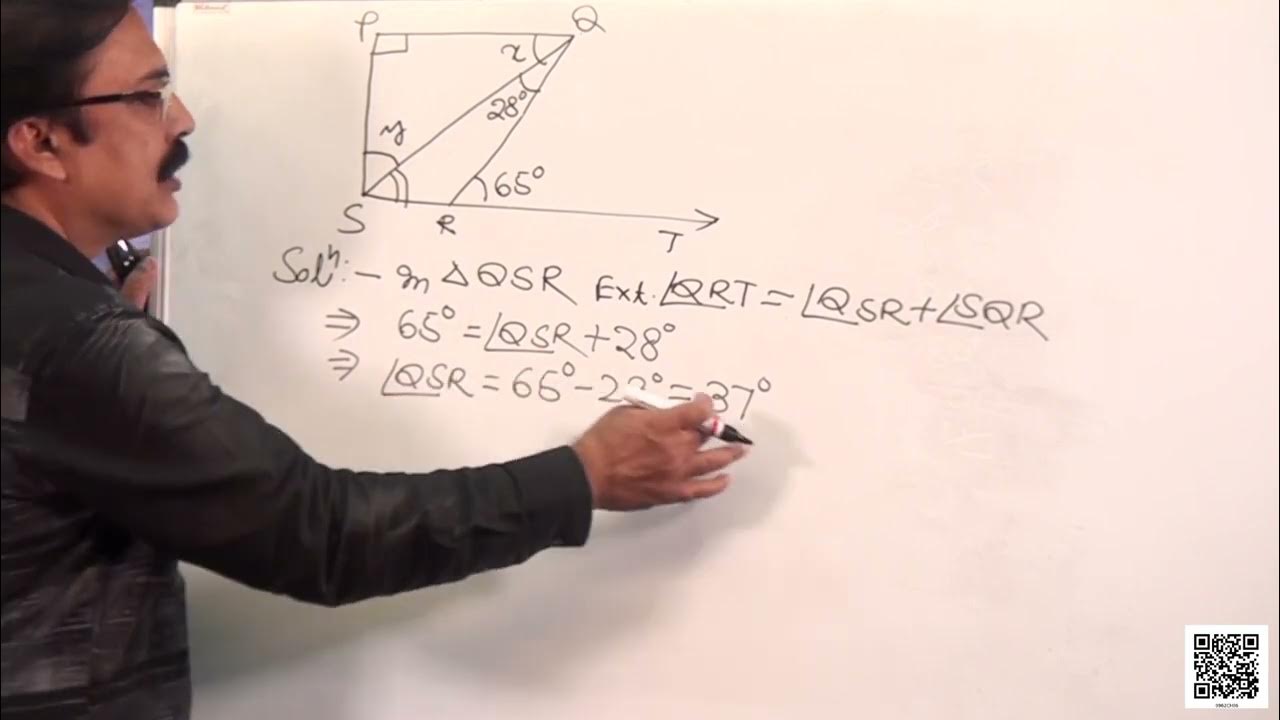 P
Q
x
28°
y
65°
S
R
T
Solⁿ:- In △QSR Ext. ∠QRT = ∠QSR + ∠SQR
⇒ 65° = ∠QSR + 28°
⇒ ∠QSR = 65° - 28° = 37°
0962CH06